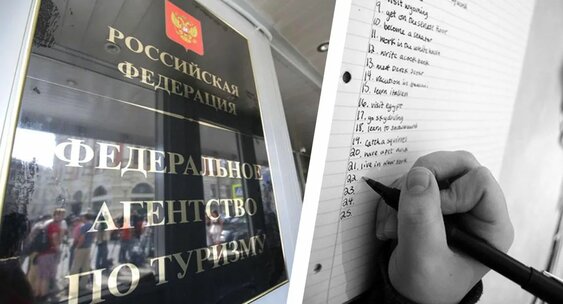 РОССИЙСКАЯ
ФЕДЕРАЦИЯ
ФЕДЕРАЛЬНОЕ
АГЕНТСТВО
ПО ТУРИЗМУ
visit wyoming
9. get on the
10. become a senator
11. work in the white house
12. write a cook book
13. meet Derek
14. vacation in
15. learn italian
16. visit egypt
17. go skydiving
18. learn to snowboard
19. catch a squirrel
20. have a pet
21. live in new york
22.
23.
24.
25.